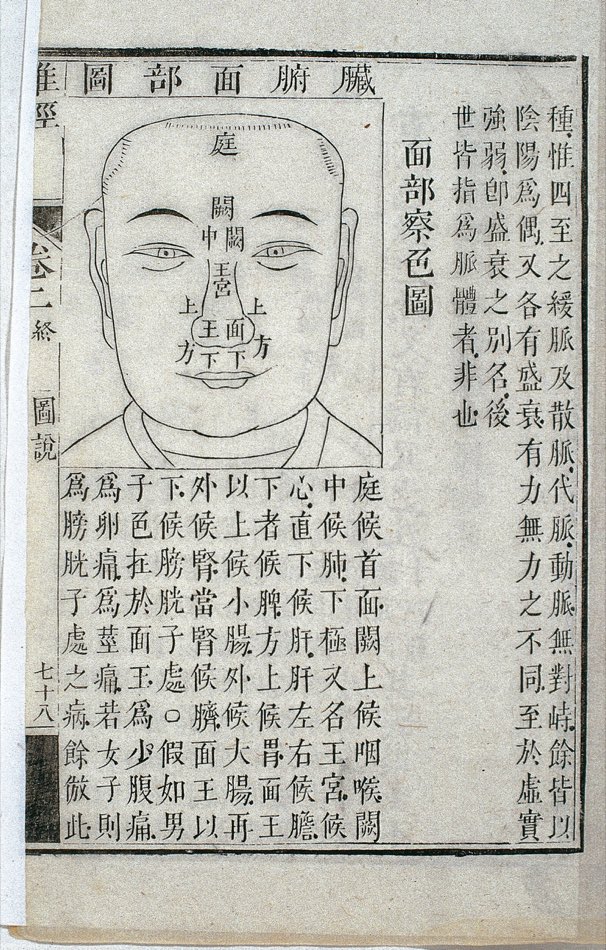 種、惟四至之緩脈及散脈、代脈、動脈、無對峙、餘皆以
陰陽爲偶、又各有盛衰、有力無力之不同、至於虛實
強弱、卽盛衰之別名、後
世皆指爲脈體者、非也、
面部察色圖
臟腑面部圖
庭
闕
闕中
王宮
上
上
面王
方
方
下
下
庭候首面、闕上候咽喉、闕
中候肺、下極又名王宮、候
心、直下候肝、肝左右候膽、
下者候脾、方上候胃、面王
以上候小腸、外候大腸、再
外候腎、當腎候臍、面王以
下、候膀胱子處○假如男
子色在於面王、爲少腹痛、
爲卵痛、爲莖痛、若女子則
爲膀胱子處之病、餘倣此、
卷二
終
圖說
七十八